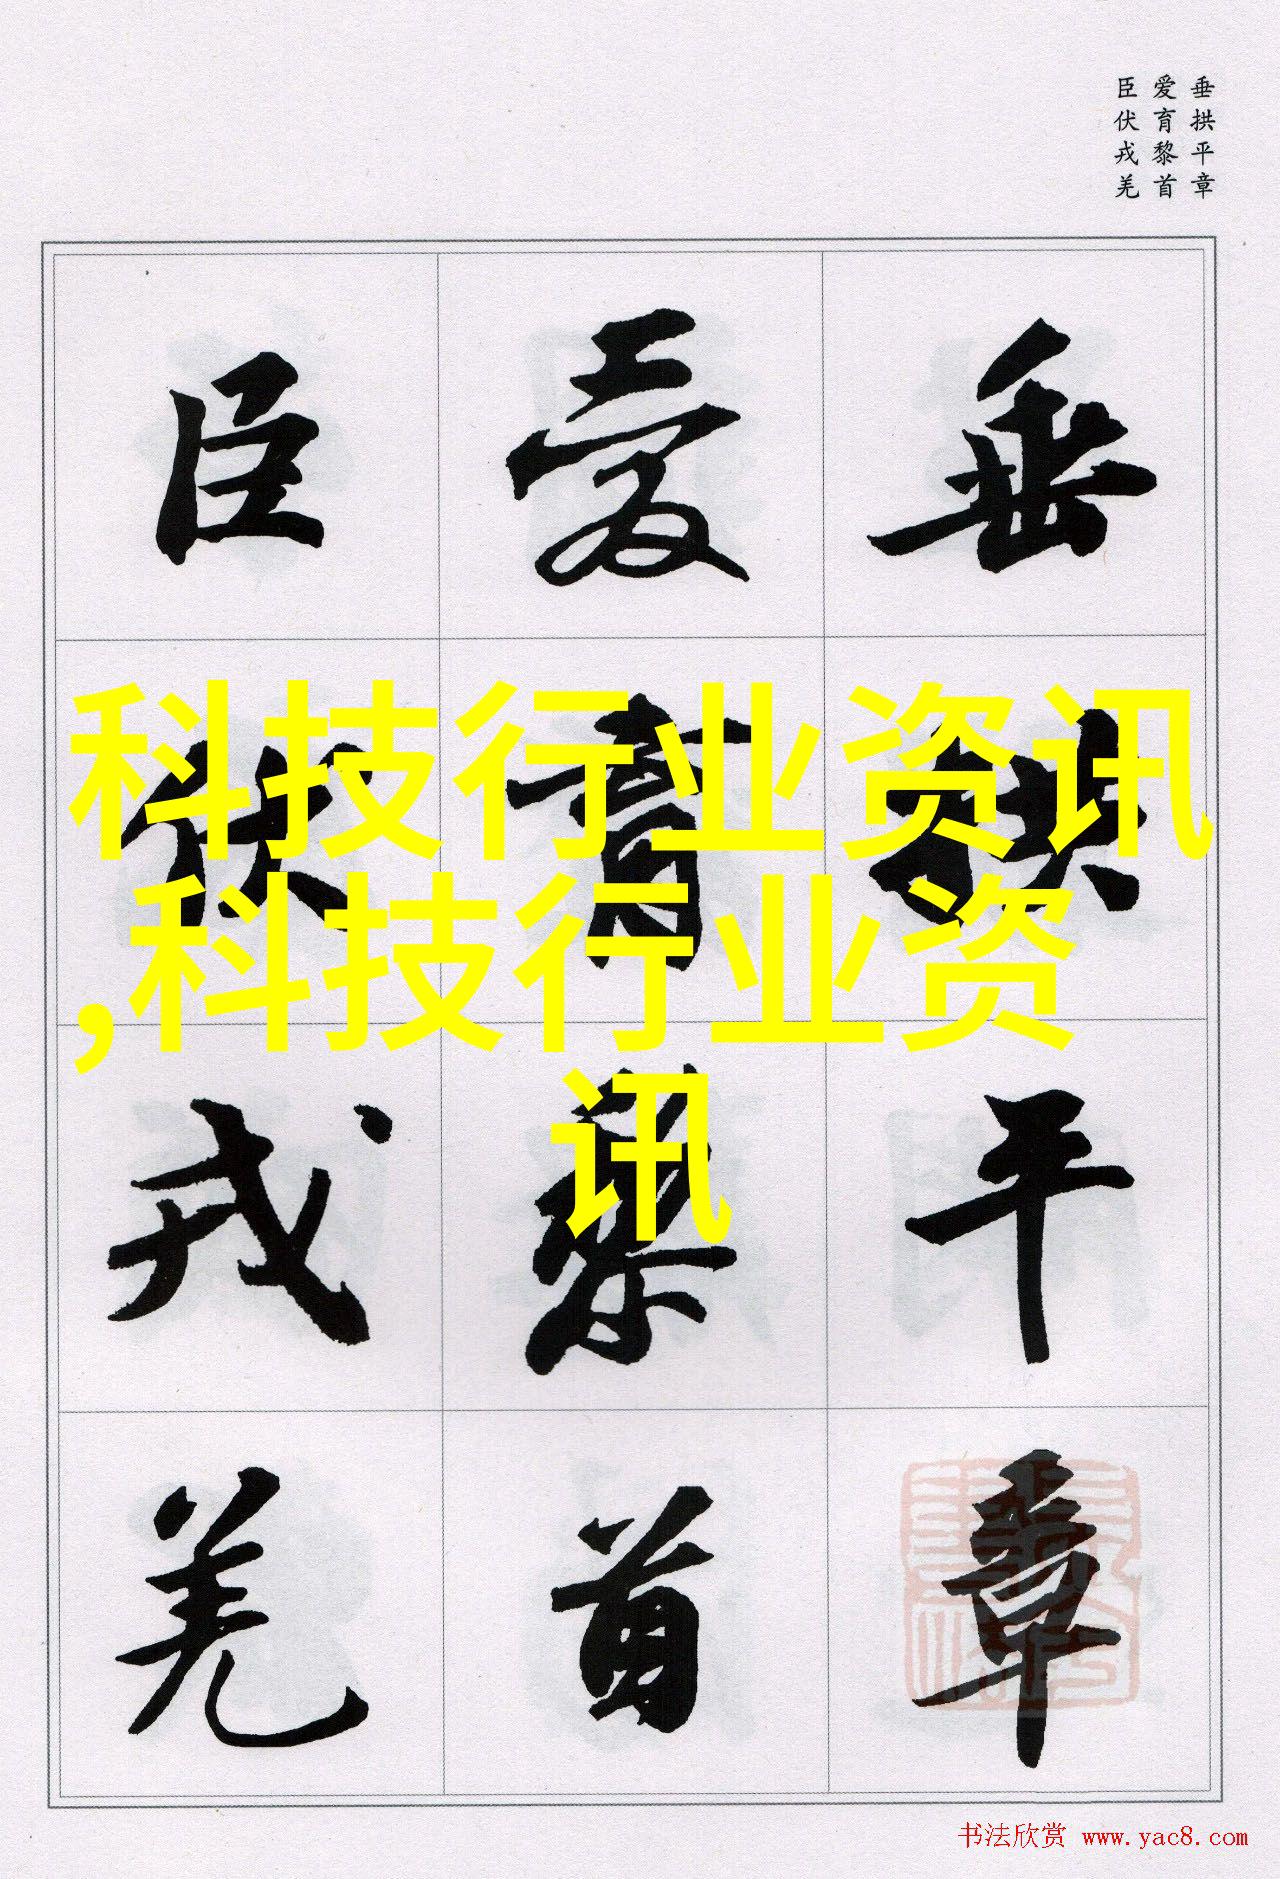 垂拱平章
爱育黎首
臣伏戎羌
垂拱平章
爱育黎首
臣伏戎羌
科技行业资讯
,科技行业资
讯
书法欣赏 www.yac8.com